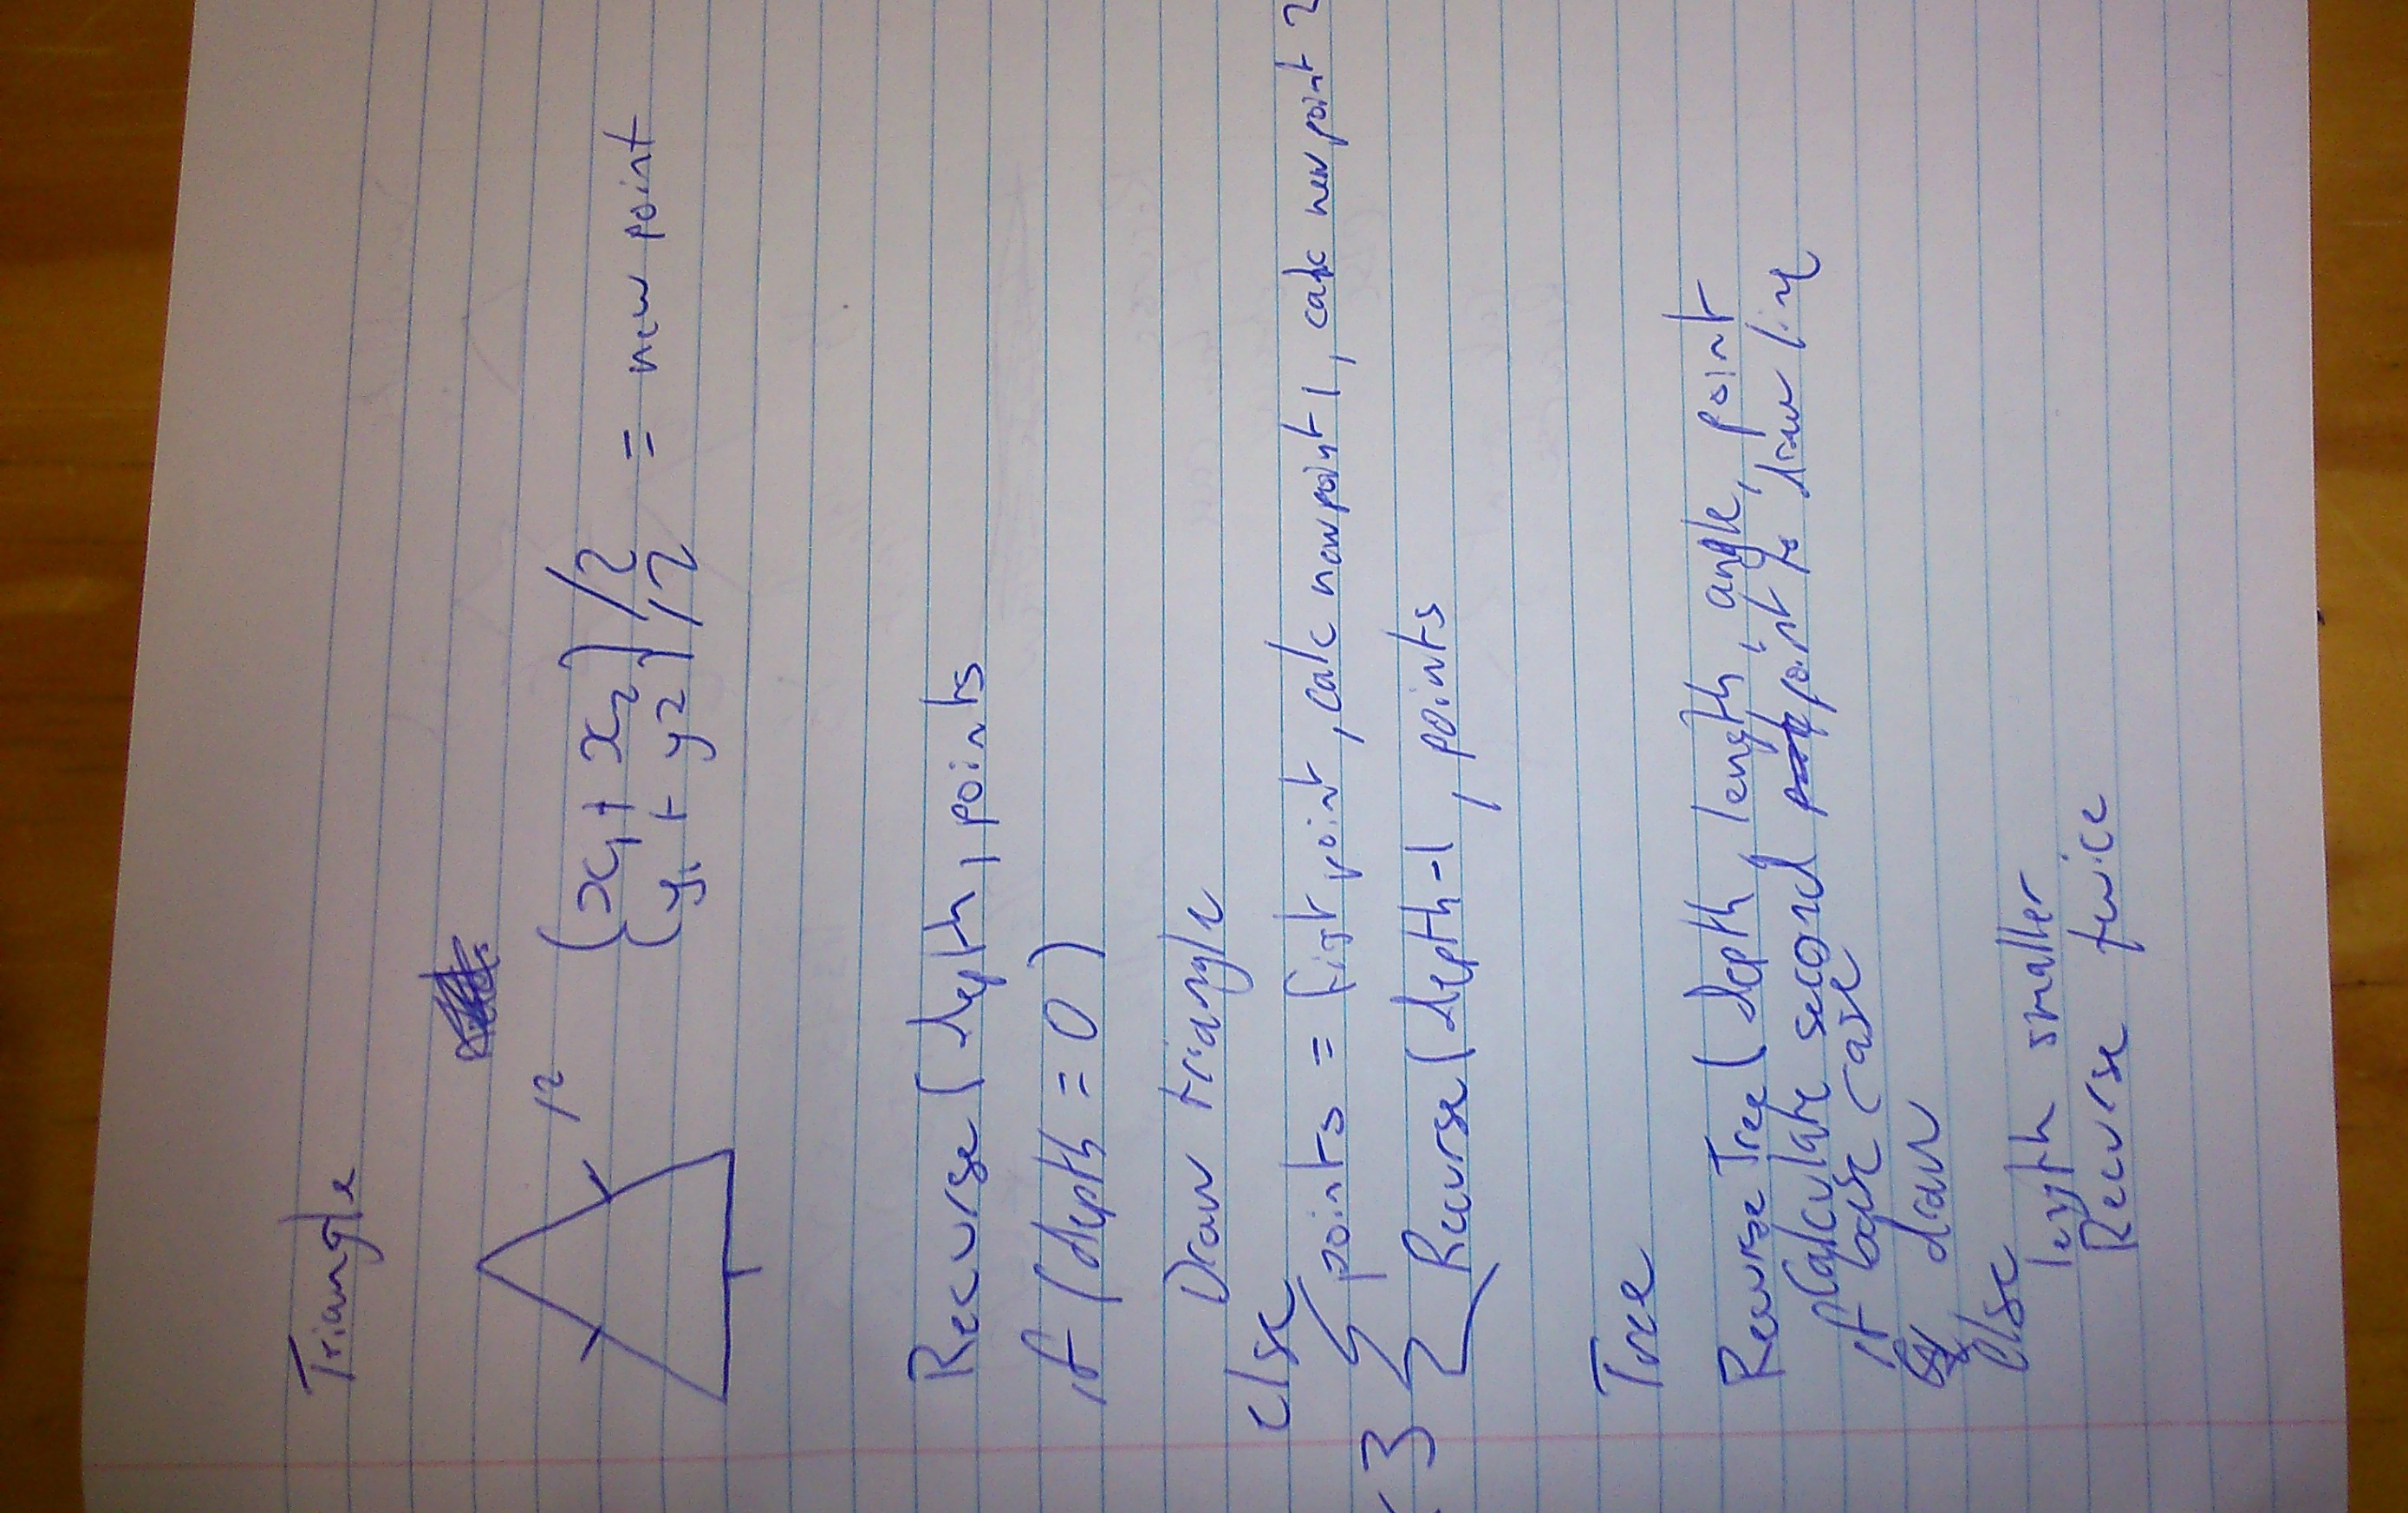 Triangle
/2
(x1 + x2)/2
(y1 + y2)/2 = new point
Recurse(depth, points
if (depth = 0)
Draw triangle
else
points = first point, calc new point 1, calc new point 2
x 3
Recurse(depth-1, points
Tree
Recurse Tree (depth, length, angle, point
Calculate second point to draw line
if base case
draw
else
length smaller
Recurse twice